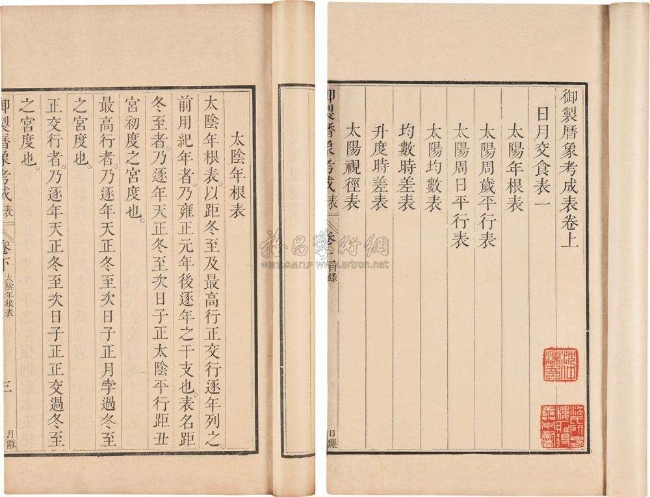 御製曆象考成表卷上
日月交食表一
太陽年根表
太陽周歲平行表
太陽周日平行表
太陽均數表
均數時差表
升度時差表
太陽視徑表
御製曆象考成表
目錄
太陰年根表
太陰年根表以距冬至及最高行正交行逐年列之
前用紀年者乃雍正元年後逐年之干支也表名距
冬至者乃逐年天正冬至次日子正太陰平行距丑
宮初度之宮度也
最高行者乃逐年天正冬至次日子正月孛過冬至
之宮度也
正交行者乃逐年天正冬至次日子正正交過冬至
之宮度也
御製曆象考成表 卷下 太陰年根表 三 月離
雅昌藝術網
www.artron.net